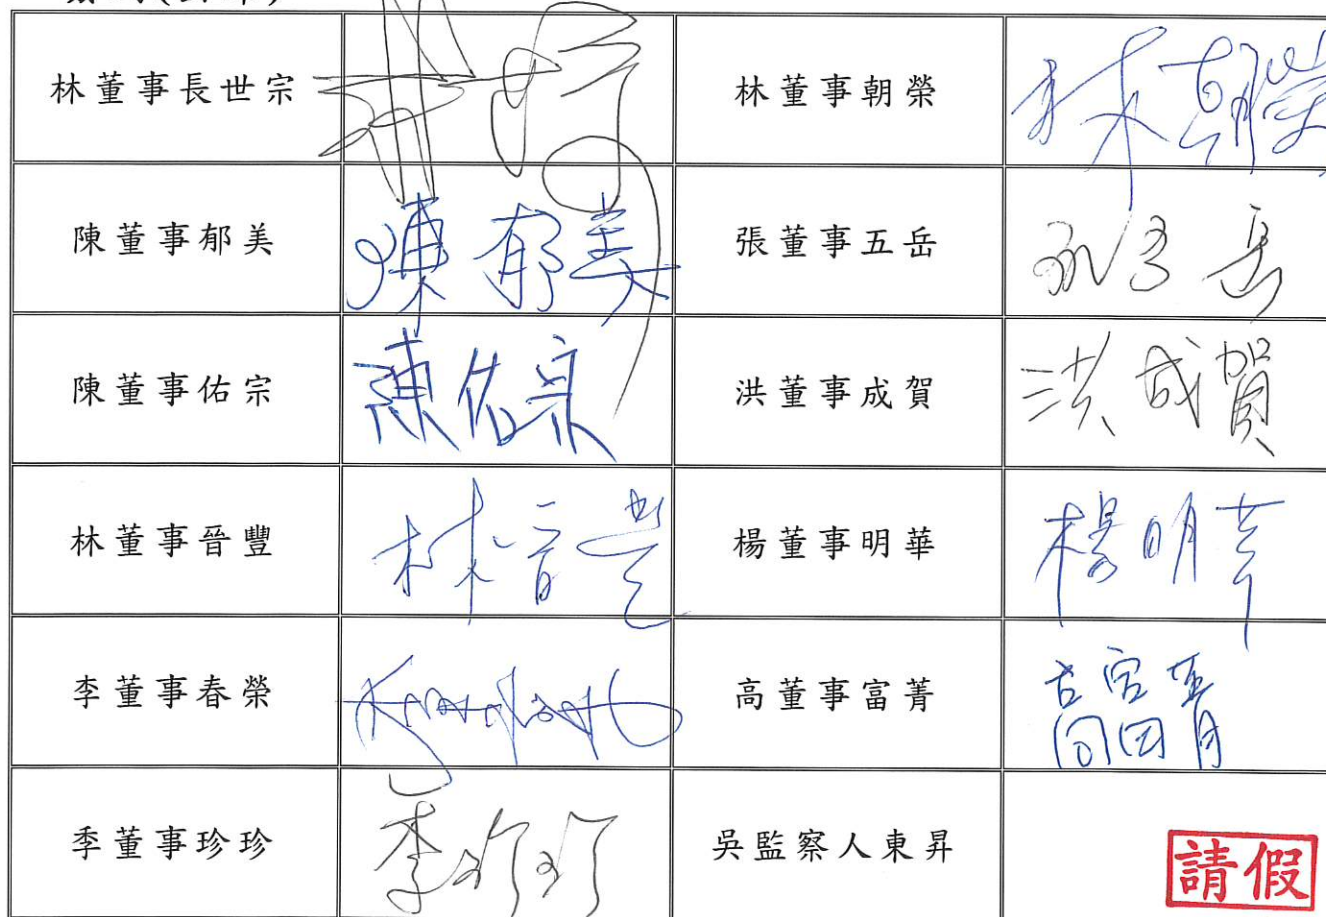 林董事長世宗 林董事朝榮 林朝榮
陳董事郁美 陳郁美 張董事五岳 張五岳
陳董事佑宗 陳佑宗 洪董事成賀 洪成賀
林董事晉豐 林晉豐 楊董事明華 楊明華
李董事春榮 高董事富菁 高富菁
季董事珍珍 季珍珍 吳監察人東昇 請假